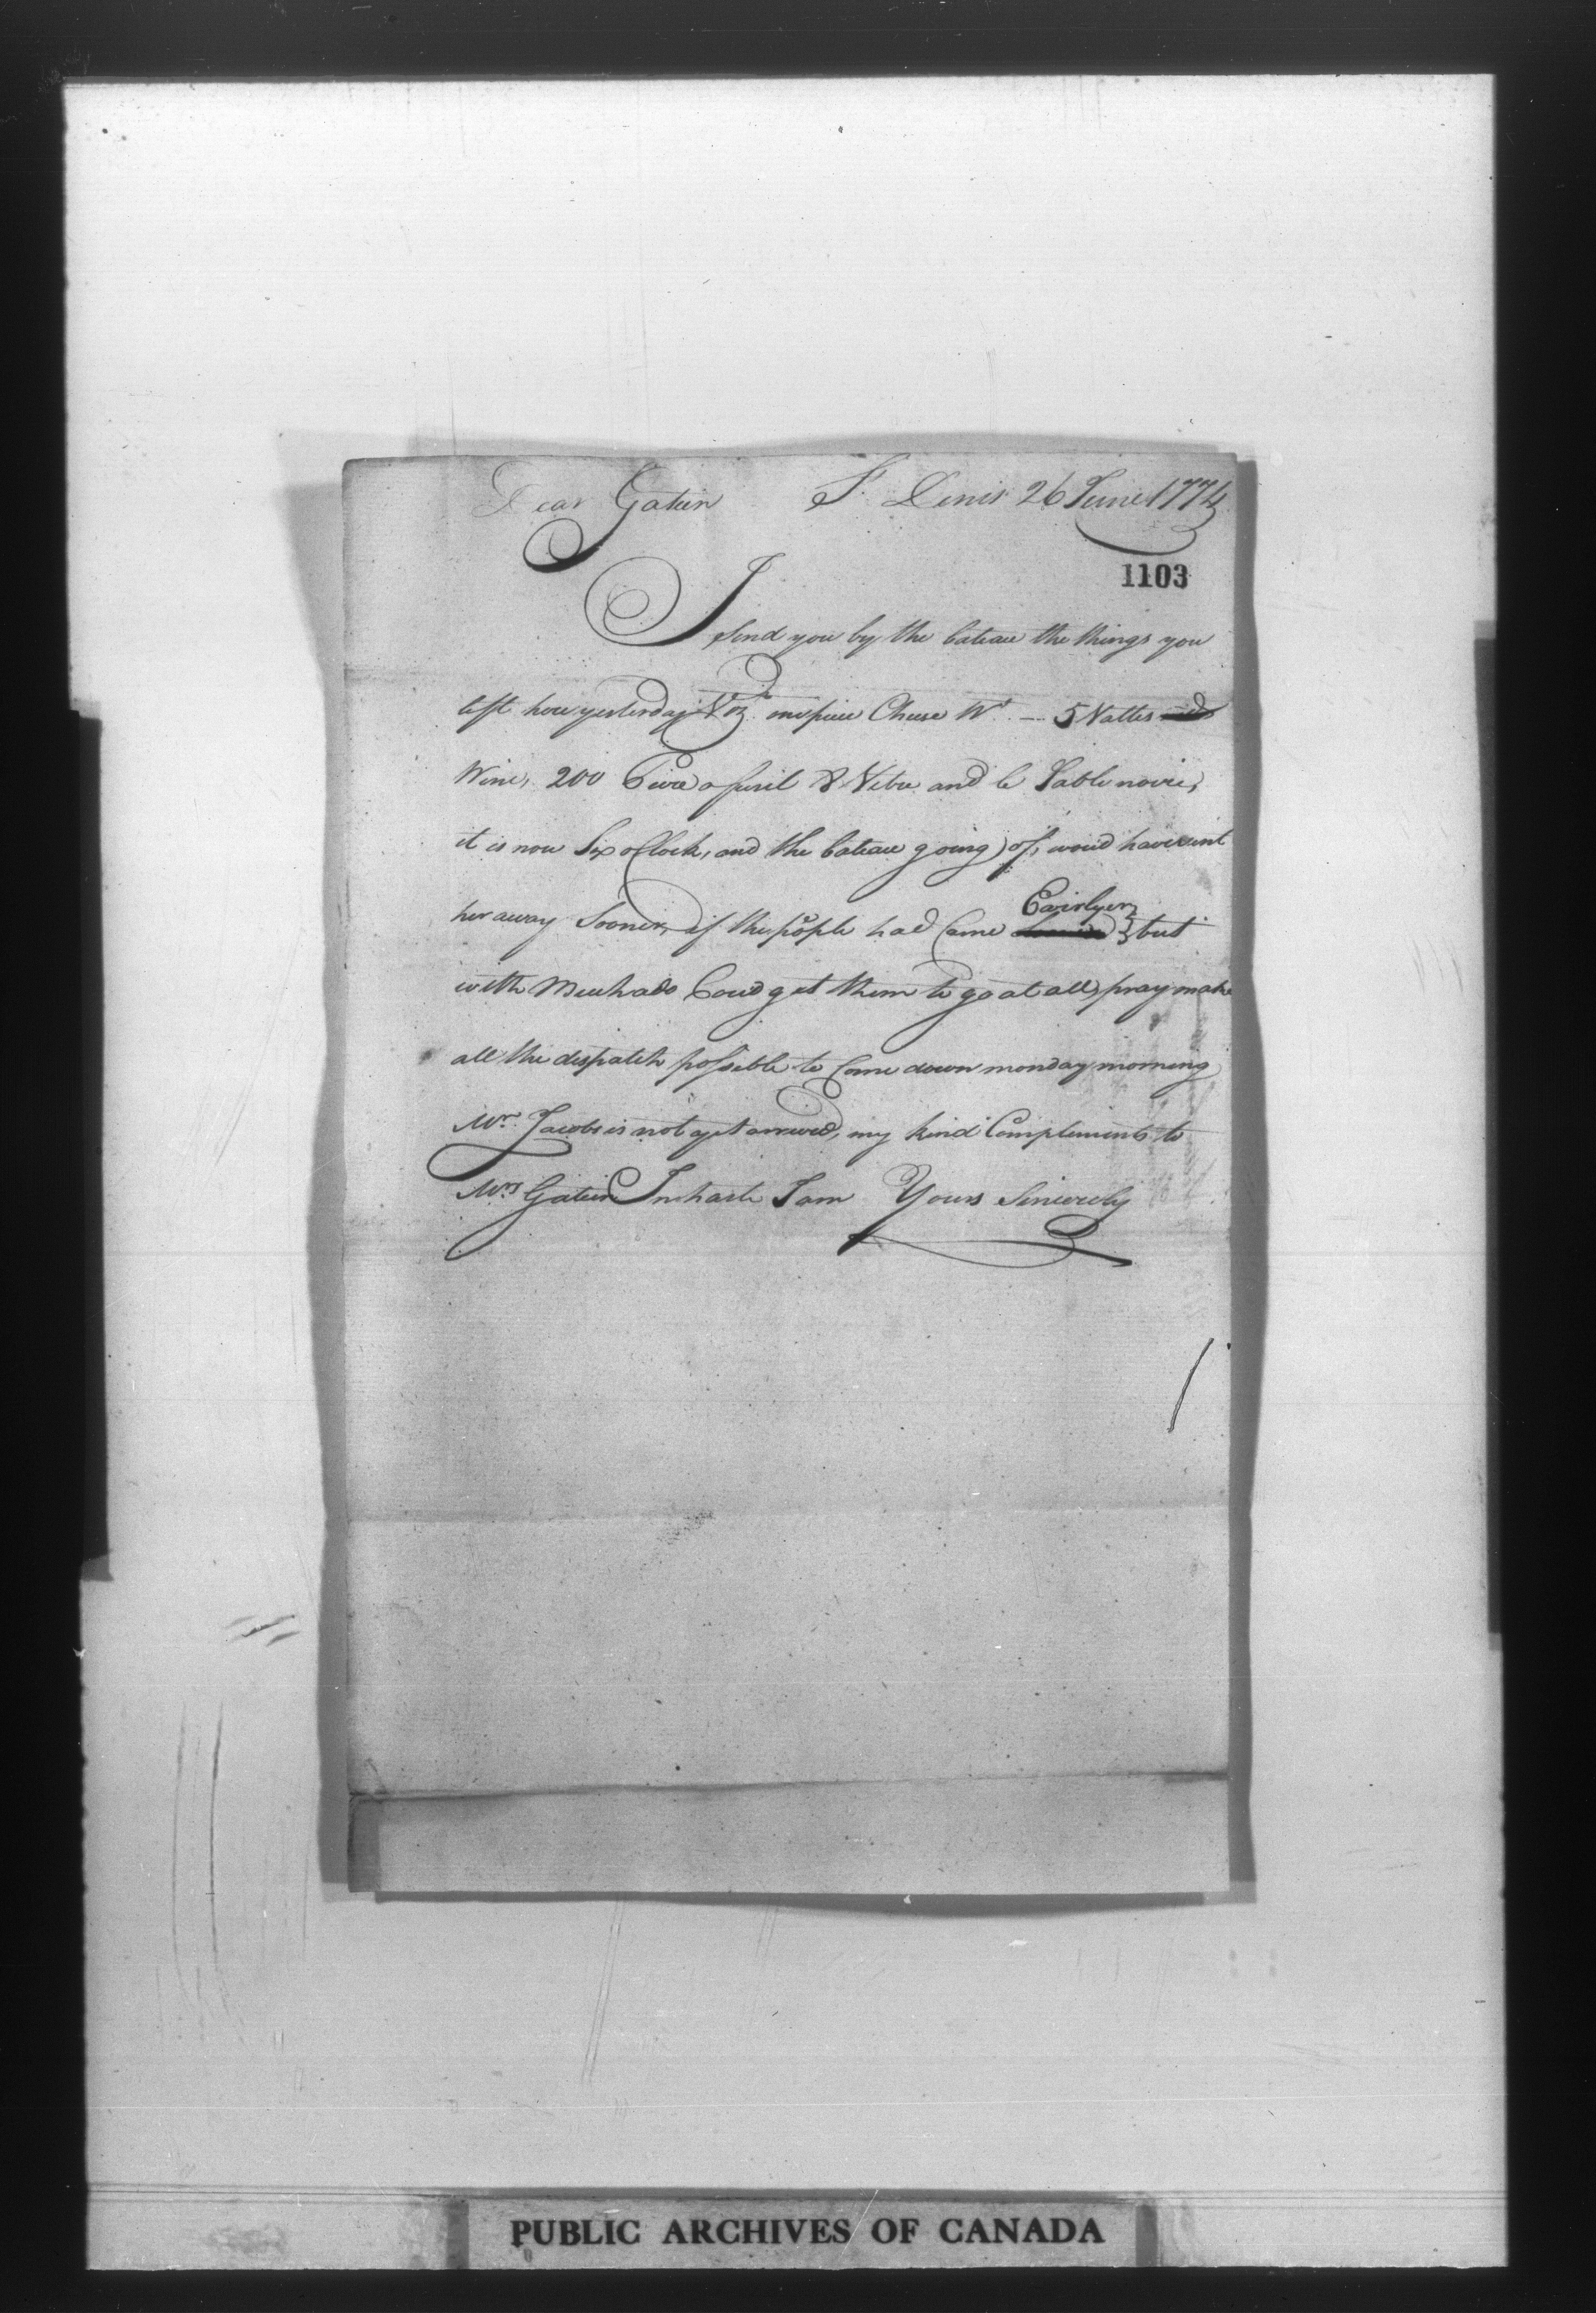 Dear Gatien St. Denis 26 June 1774
1103
I send you by the bateau the things you
left here yesterday Viz. one piece Cheese Wt. — 5 Nattes
Wine, 200 Pierre a fusil & Vitre and le Sable noire,
it is now Six oClock, and the bateau going of, woud have sent
her away Sooner, if the people had Came Eairlyer but
with Much ado Coud get them to go at all, pray make
all the dispatch possible to Come down monday morning
Mr. Jacobs is not yet arrived, my kind Complements to
Mrs Gatien In haste I am Yours Sincerely
PUBLIC ARCHIVES OF CANADA